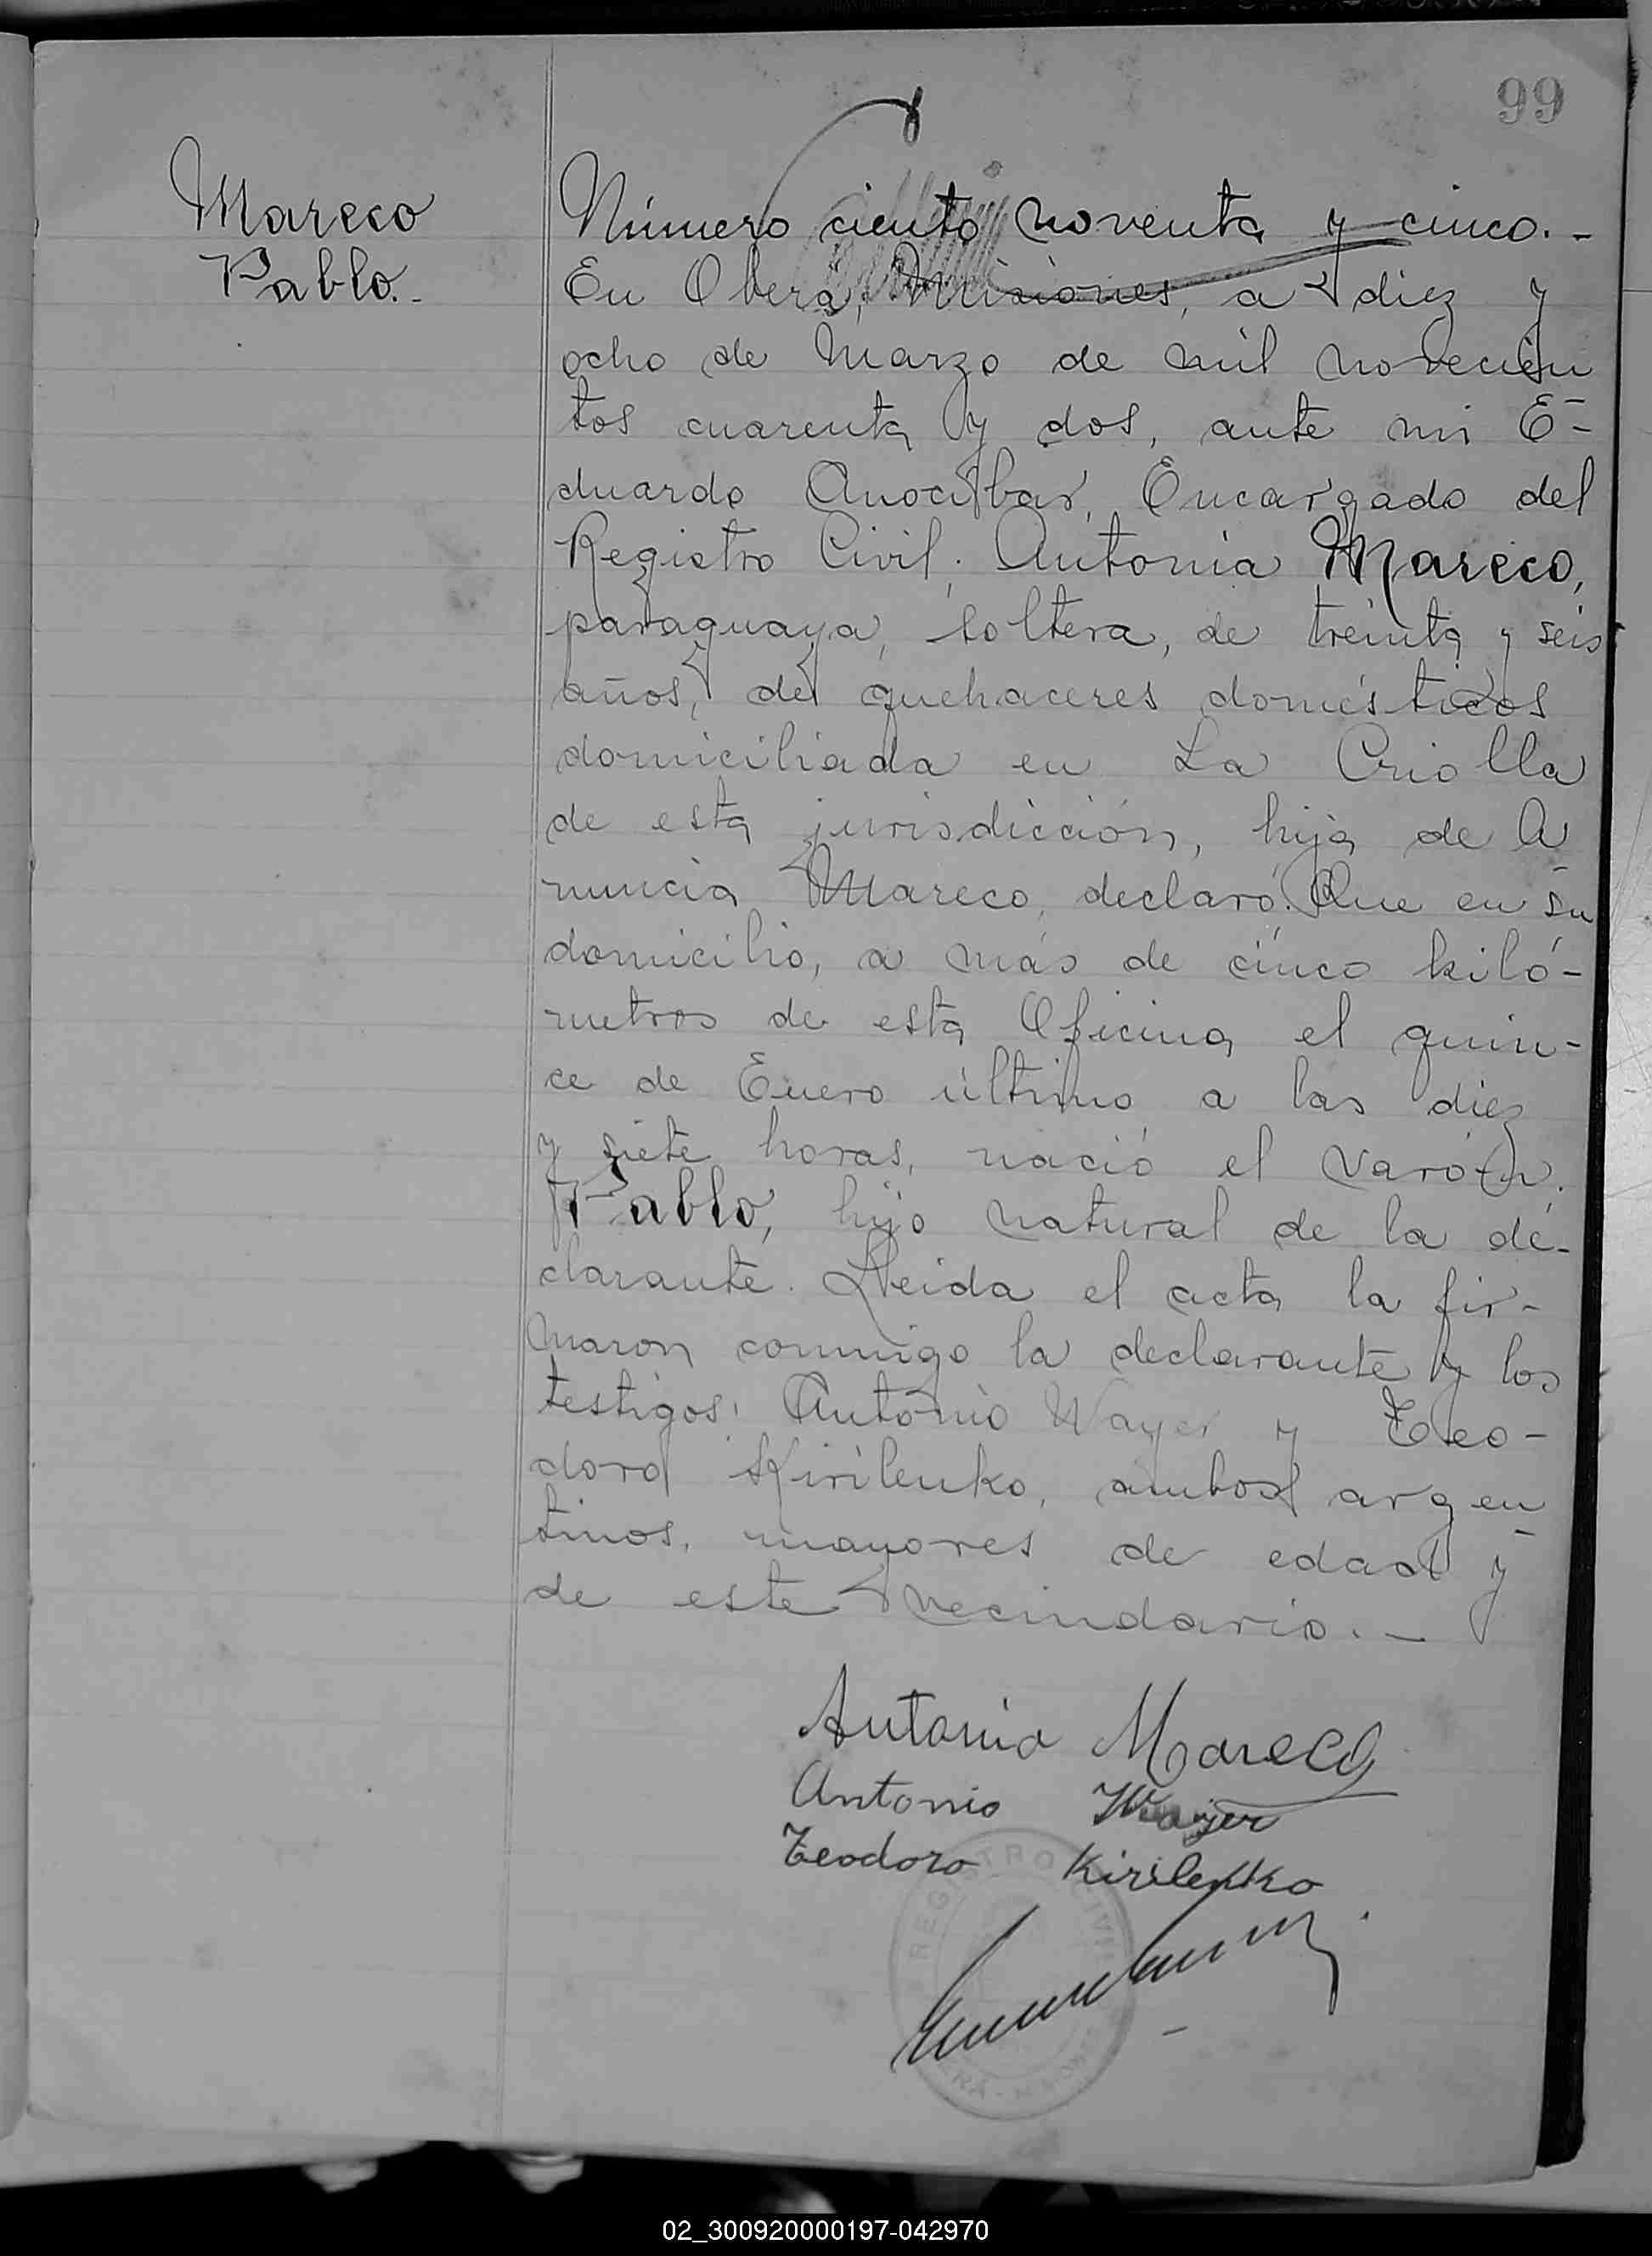 99
Mareco
Pablo.-
Número ciento noventa y cinco.-
En Oberá, Misiones, a diez y
ocho de Marzo de mil novecien
tos cuarenta y dos, ante mi E-
duardo Anocibar, Encargado del
Registro Civil; Antonia Mareco,
paraguaya, soltera, de treinta y seis
años, de quehaceres domésticos
domiciliada en La Criolla
de esta jurisdicción, hija de A
nuncia Mareco, declaró: Que en su
domicilio, a más de cinco kiló-
metros de esta Oficina el quin-
ce de Enero último a las diez
y siete horas, nació el varón
Pablo, hijo natural de la de-
clarante. Leida el acta la fir-
maron conmigo la declarante y los
testigos: Antonio Wayer y Teo-
doro Kirilenko, ambos argen
tinos, mayores de edad y
de este vecindario.-
Antonia Mareco
Antonio Wayer
Teodoro Kirilenko
REGISTRO CIVIL
02_300920000197-042970